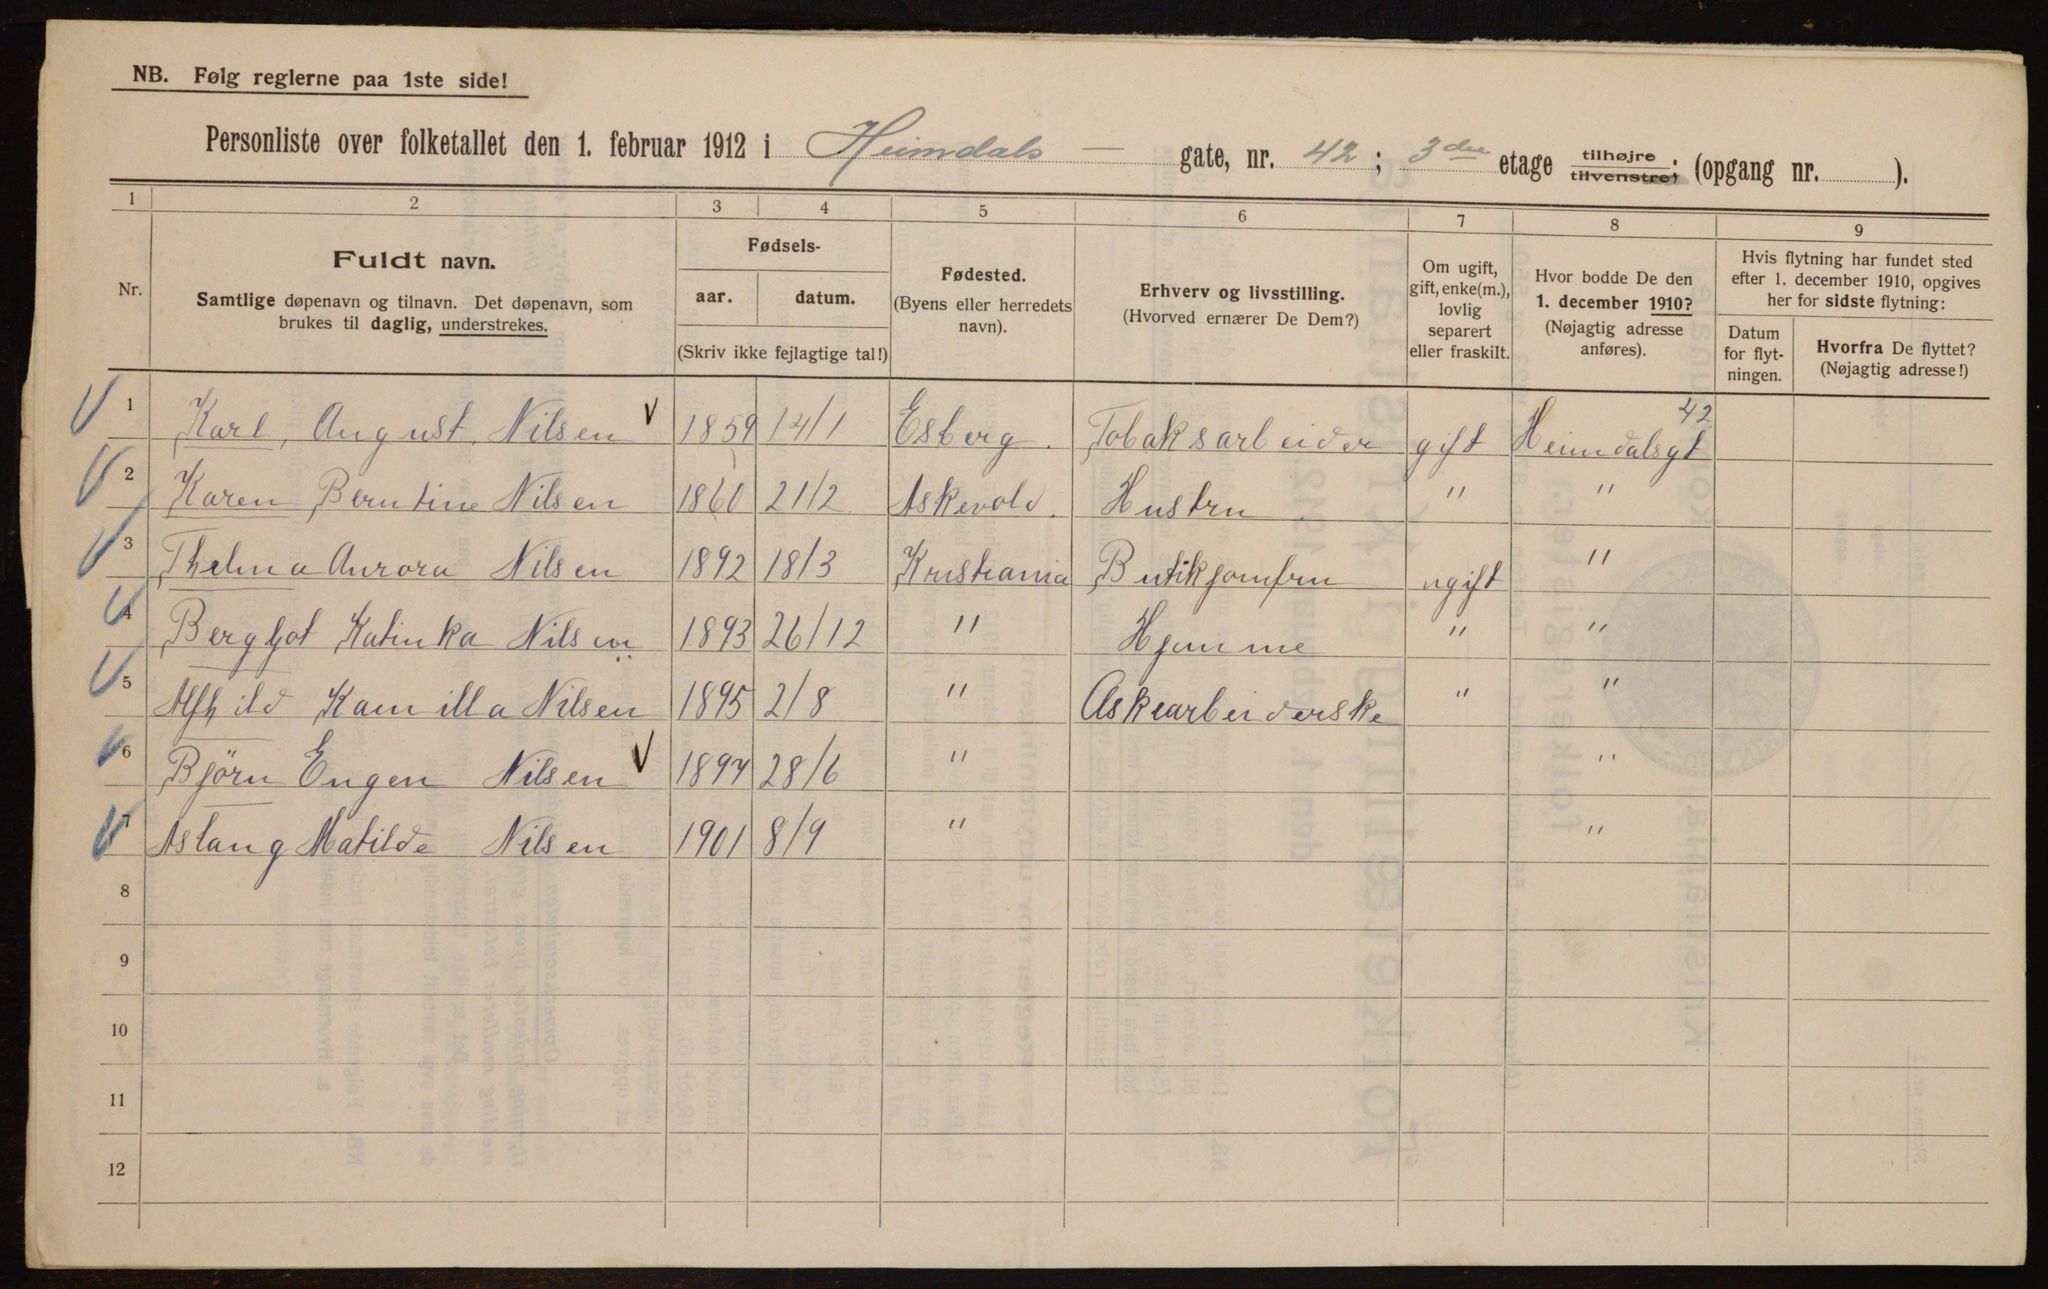 NB. Følg reglerne paa 1ste side!
Personliste over folketallet den 1. februar 1912 i Heimdals — gate, nr. 42 ; 3die etage tilhøjre tilvenstre; (opgang nr. ).
1 2 3 4 5 6 7 8 9
Nr.
Fuldt navn.
Samtlige døpenavn og tilnavn. Det døpenavn, som
brukes til daglig, understrekes.
Fødsels-
aar. datum.
(Skriv ikke fejlagtige tal!)
Fødested.
(Byens eller herredets
navn).
Erhverv og livsstilling.
(Hvorved ernærer De Dem?)
Om ugift,
gift, enke(m.),
lovlig
separert
eller fraskilt.
Hvor bodde De den
1. december 1910?
(Nøjagtig adresse
anføres).
Hvis flytning har fundet sted
efter 1. december 1910, opgives
her for sidste flytning:
Datum
for flyt-
ningen.
Hvorfra De flyttet?
(Nøjagtig adresse!)
1 Karl, August, Nilsen 1859 14/1 Esberg. Tobaksarbeider gift Heimdalsgt 42
2 Karen Berntine Nilsen 1860 21/2 Askevold. Hustru " "
3 Thelma Aurora Nilsen 1892 18/3 Kristiania Butikjomfru ugift "
4 Bergljot Katinka Nilsen 1893 26/12 " Hjemme " "
5 Alfhild Kamilla Nilsen 1895 2/8 " Askearbeiderske " "
6 Björn Engen Nilsen 1897 28/6 " "
7 Aslaug Matilde Nilsen 1901 8/9 " "
8
9
10
11
12